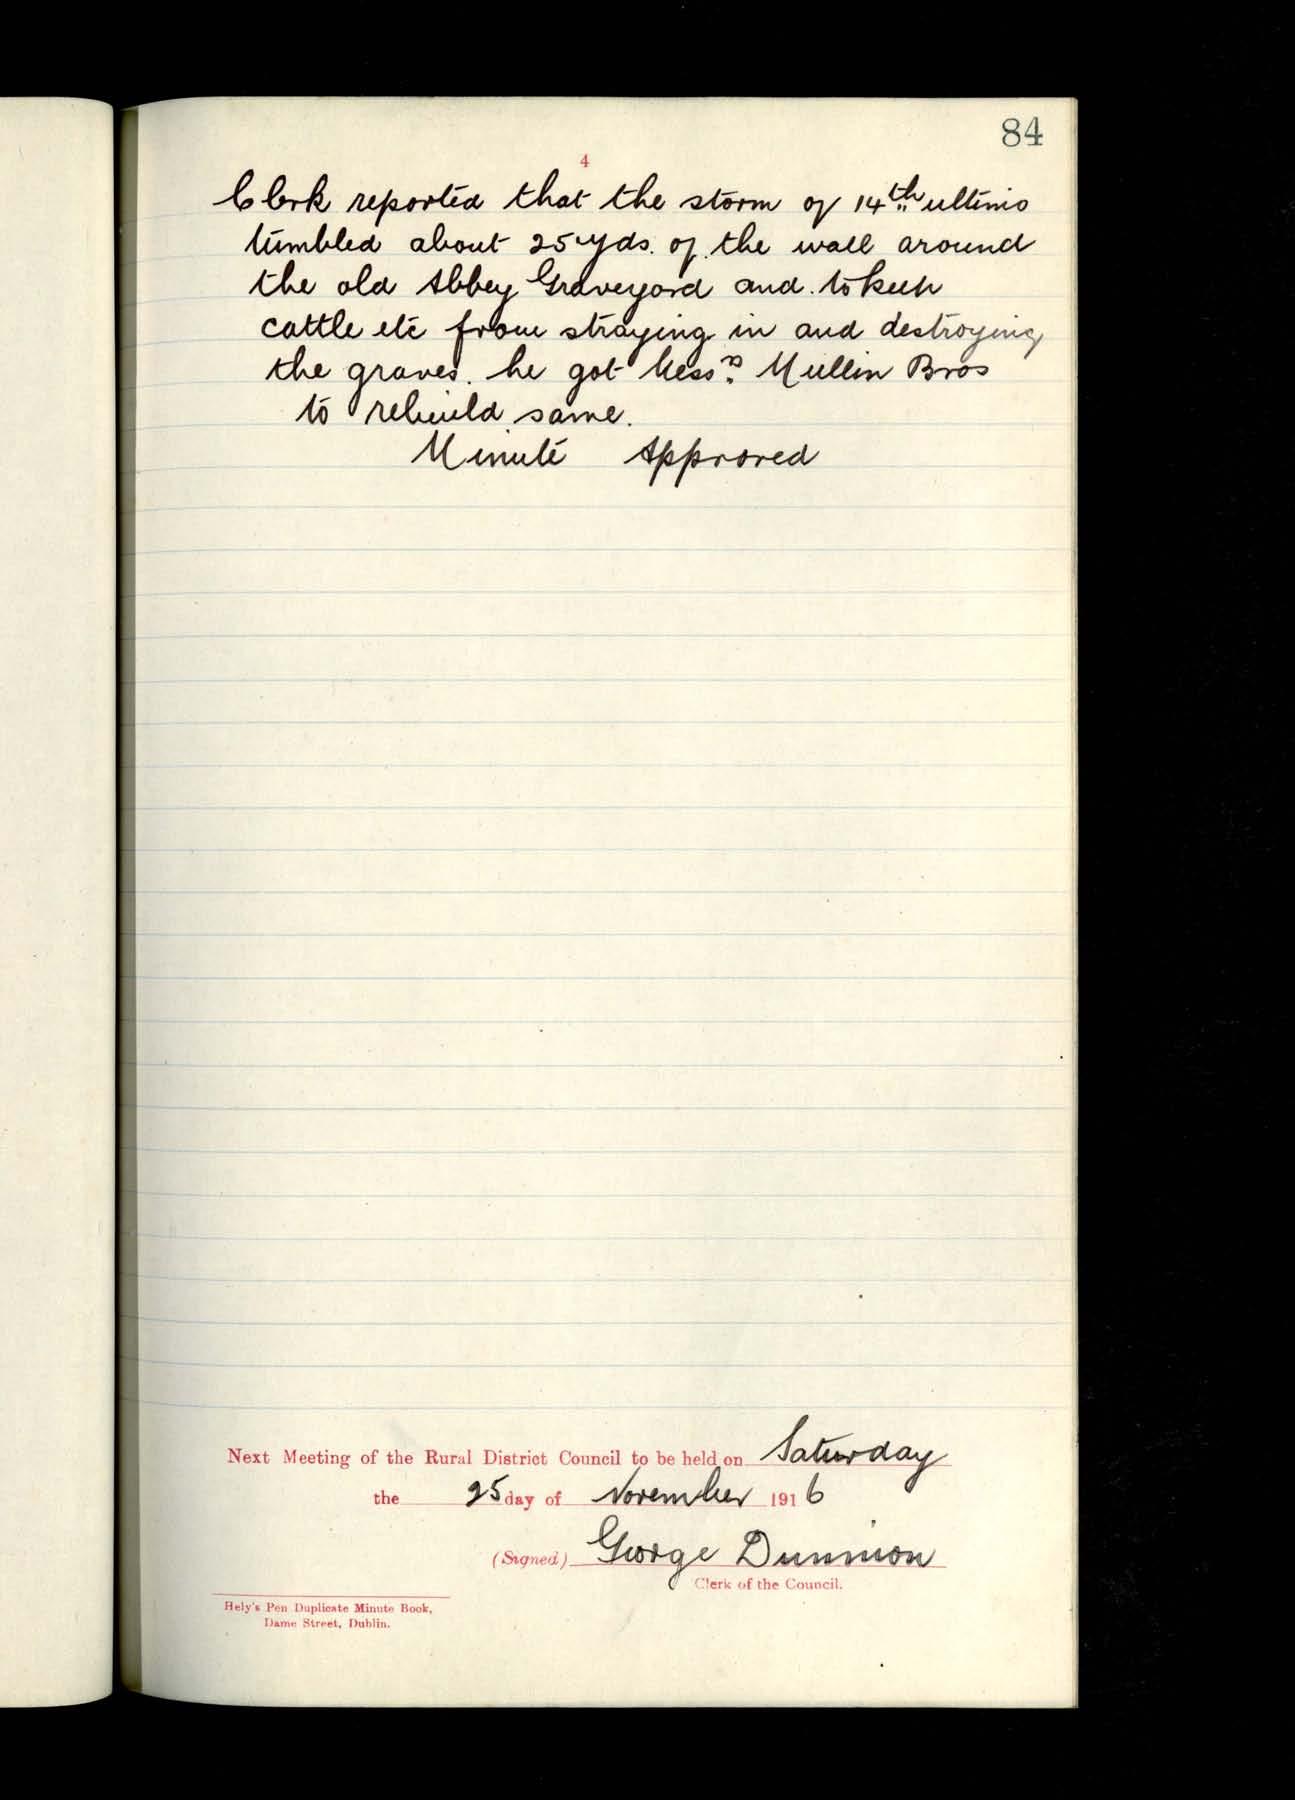 84
4
Clerk reported that the storm of 14th ultimo
tumbled about 25 yds. of the wall around
the old Abbey Graveyard and to keep
cattle etc from straying in and destroying
the graves. he got Messrs. Mullin Bros
to rebuild same.
Minute Approved
Next Meeting of the Rural District Council to be held on Saturday
the 25 day of November 1916
(Signed) George Dunnion
Clerk of the Council.
Hely's Pen Duplicate Minute Book,
Dame Street, Dublin.